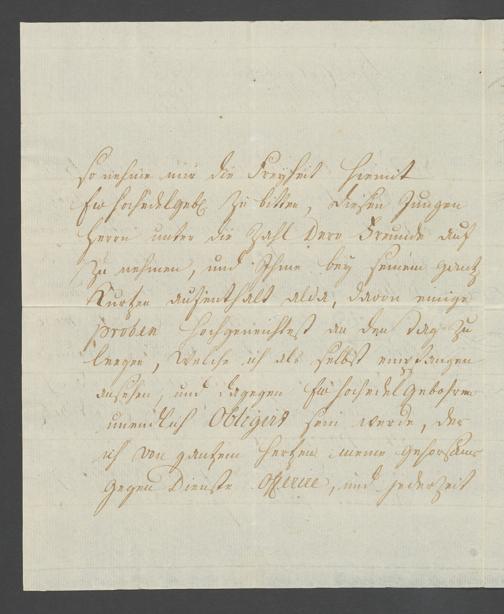 so nehme mir die Freyheit hiemit
Ew HochEdelgeb. zu bitten, diesen Jungen
Herrn unter die Zahl Dero Freunde auf
zu nehmen, und Ihme bey seinem gantz
Kurtzen aufenthalt alda, davon einige
proben hochgeneigtest an den Tag zu
leegen, welche ich als selbst empfangen
ansehen, und dagegen Ew HochEdelgebohren
unendlich Obligirt sein werde, der
ich von gantzem Hertzen meine gehorsame
gegen Dienste Offerire, und jederzeit